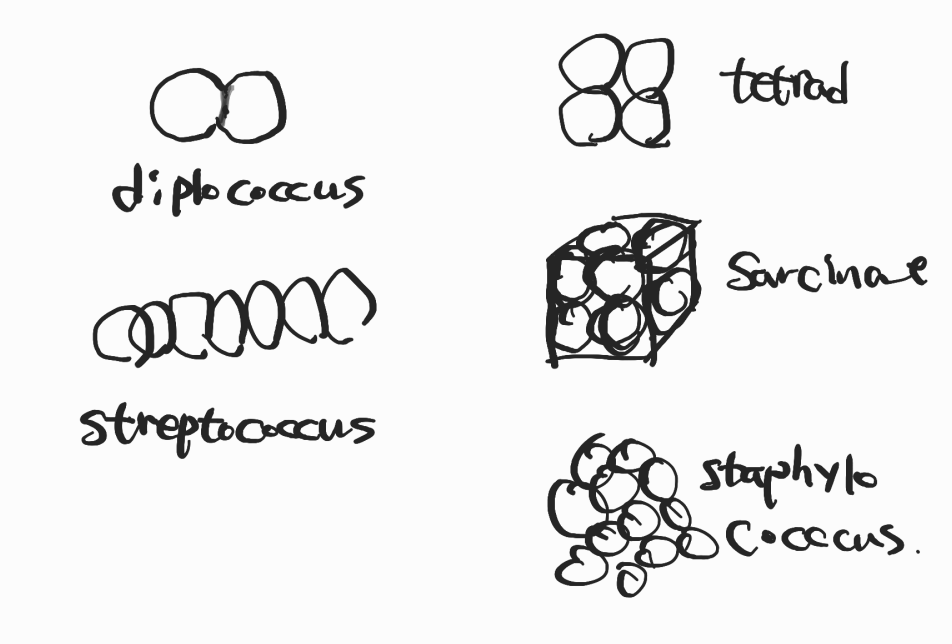 diplococcus
streptococcus
tetrad
Sarcinae
staphylo
coccus.